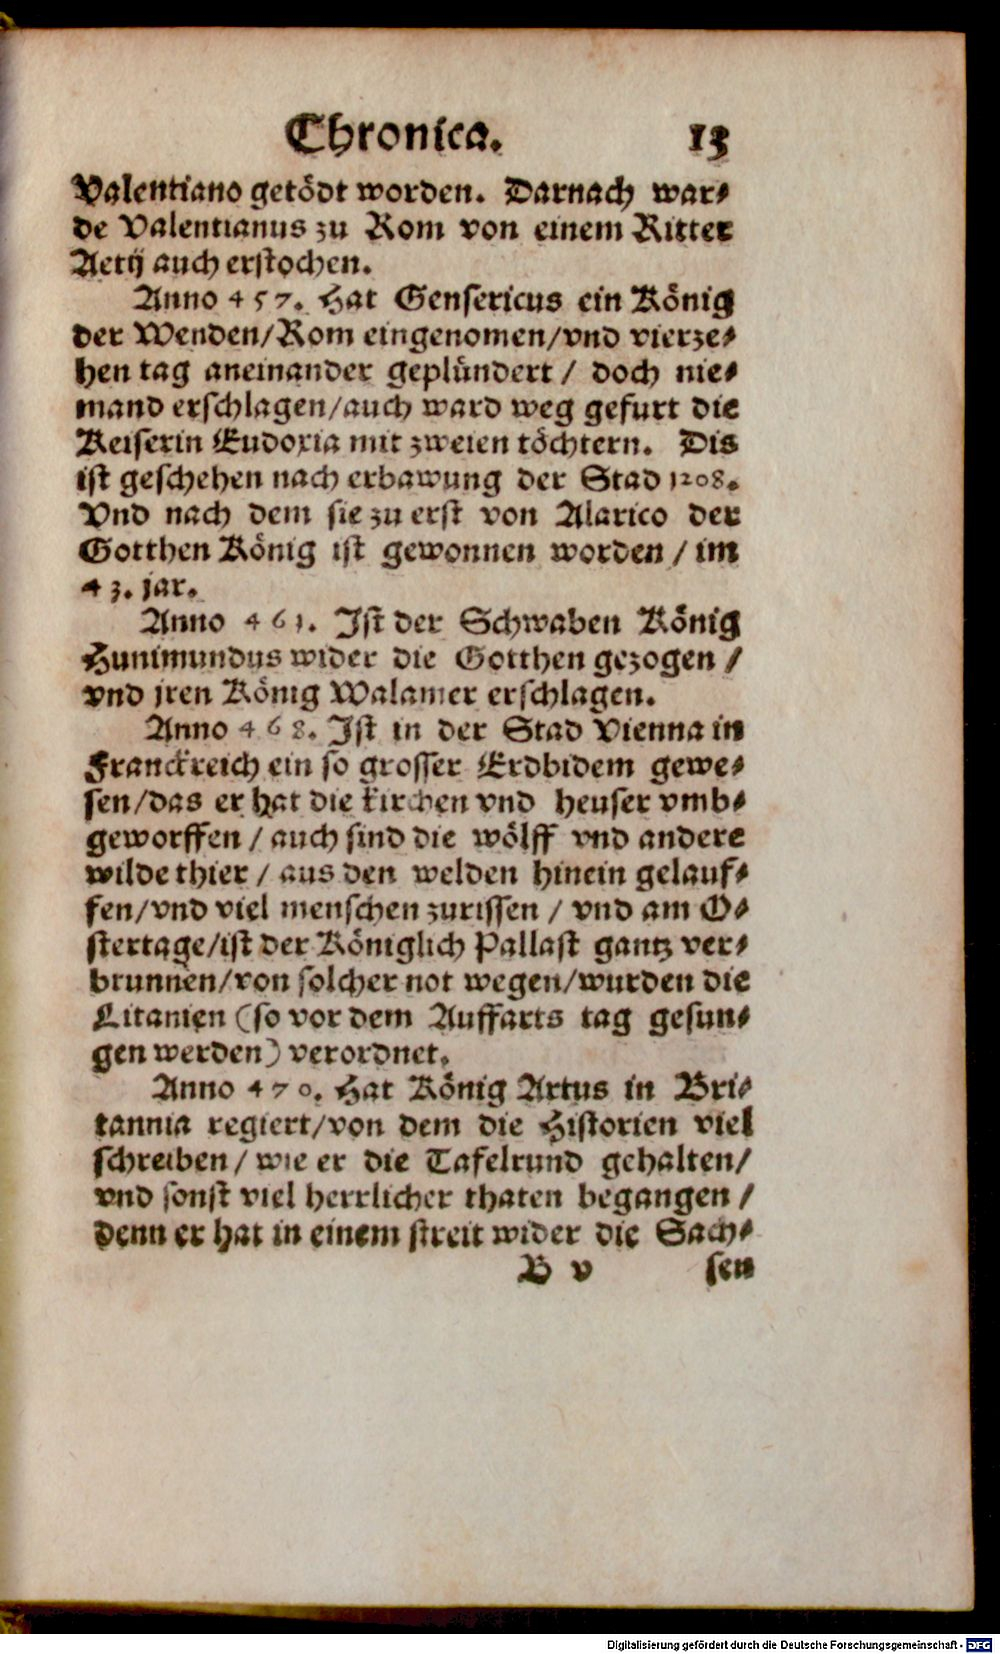 Chronica. 13
Valentiano getödt worden. Darnach war⸗
de Valentianus zu Rom von einem Ritter
Aetij auch erstochen.
Anno 457. Hat Gensericus ein König
der Wenden/Rom eingenomen/vnd vierze⸗
hen tag aneinander geplündert / doch nie⸗
mand erschlagen/auch ward weg gefurt die
Keiserin Eudoxia mit zweien töchtern. Dis
ist geschehen nach erbawung der Stad 1208.
Vnd nach dem sie zu erst von Alarico der
Gotthen König ist gewonnen worden / im
43. jar.
Anno 461. Ist der Schwaben König
Hunimundus wider die Gotthen gezogen /
vnd jren König Walamer erschlagen.
Anno 468. Ist in der Stad Vienna in
Franckreich ein so grosser Erdbidem gewe⸗
sen/das er hat die kirchen vnd heuser vmb⸗
geworffen / auch sind die wölff vnd andere
wilde thier / aus den welden hinein gelauf⸗
fen/vnd viel menschen zurissen / vnd am O⸗
stertage/ist der Königlich Pallast gantz ver⸗
brunnen/von solcher not wegen/wurden die
Litanien (so vor dem Auffarts tag gesun⸗
gen werden) verordnet.
Anno 470. Hat König Artus in Bri⸗
tannia regiert/von dem die Historien viel
schreiben / wie er die Tafelrund gehalten/
vnd sonst viel herrlicher thaten begangen /
denn er hat in einem streit wider die Sach⸗
B v sen
Digitalisierung gefördert durch die Deutsche Forschungsgemeinschaft - DFG